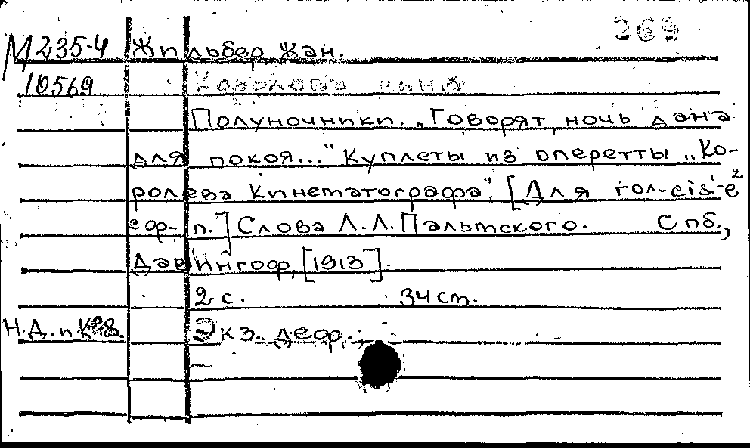 269
М 235-4 Жильбер Жан.
10569
Полуночники. „Говорят, ночь дана
для покоя..." Куплеты из оперетты „Ко-
ролева Кинематографа". [Для гол-cis¹-e²
с ф-п.] Слова Л.Л. Пальмского. Спб.,
Давингоф, [1913].
2 с. 34 см.
Н.Д.п. Экз. деф.